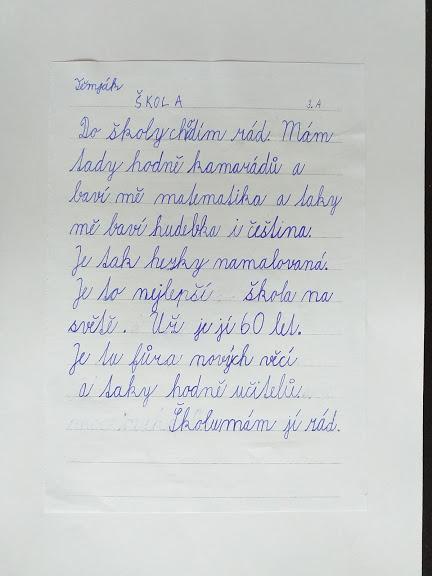 Těmják
ŠKOLA 3.A
Do školy chodím rád. Mám
tady hodně kamarádů a
baví mě matematika a taky
mě baví hudebka i čeština.
Je tak hezky namalovaná.
Je to nejlepší škola na
světě. Už je jí 60 let.
Je tu fůra nových věcí
a taky hodně učitelů.
Školu mám jí rád.